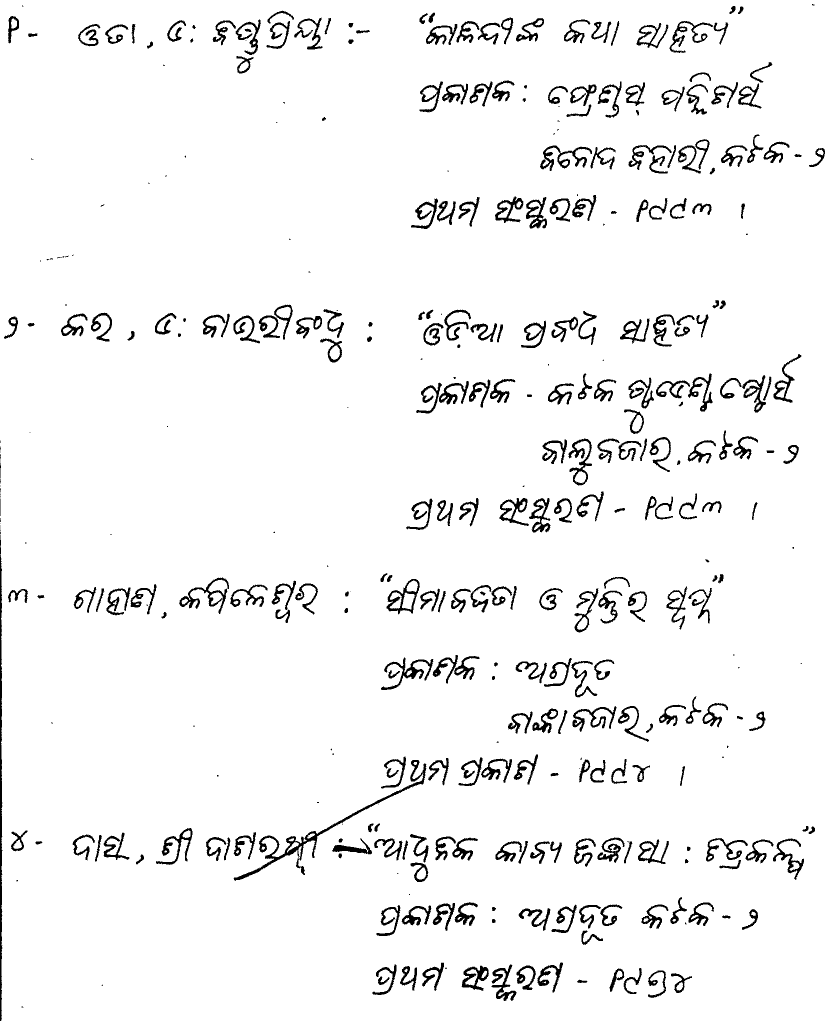 ୧- ଓତା, ଡ: ବିଷ୍ଣୁପ୍ରିୟା :- “କାଳିନ୍ଦୀଙ୍କ କଥା ସାହିତ୍ୟ”
ପ୍ରକାଶକ : ଫ୍ରେଣ୍ଡସ୍ ପବ୍ଲିଶର୍ସ
ବିନୋଦ ବିହାରୀ, କଟକ - ୨
ପ୍ରଥମ ସଂସ୍କରଣ - ୧୯୯୩ ।
୨- କର, ଡ: ବାଉରୀବଂଧୁ : “ଓଡ଼ିଆ ପ୍ରବଂଧ ସାହିତ୍ୟ”
ପ୍ରକାଶକ - କଟକ ଷ୍ଟୁଡେଣ୍ଟ ଷ୍ଟୋର୍ସ
ବାଲୁବଜାର, କଟକ - ୨
ପ୍ରଥମ ସଂସ୍କରଣ - ୧୯୯୩ ।
୩- ଗାହାଣ, କପିଳେଶ୍ୱର : “ସୀମାବଦ୍ଧତା ଓ ମୁକ୍ତିର ସ୍ୱପ୍ନ”
ପ୍ରକାଶକ : ଅଗ୍ରଦୂତ
ବାଙ୍କାବଜାର, କଟକ - ୨
ପ୍ରଥମ ପ୍ରକାଶ - ୧୯୯୪ ।
୪- ଦାସ, ଶ୍ରୀ ଦାଶରଥୀ :- “ଆଧୁନିକ କାବ୍ୟ ଜିଜ୍ଞାସା : ଚିତ୍ରକଳ୍ପ”
ପ୍ରକାଶକ : ଅଗ୍ରଦୂତ କଟକ - ୨
ପ୍ରଥମ ସଂସ୍କରଣ - ୧୯୭୪